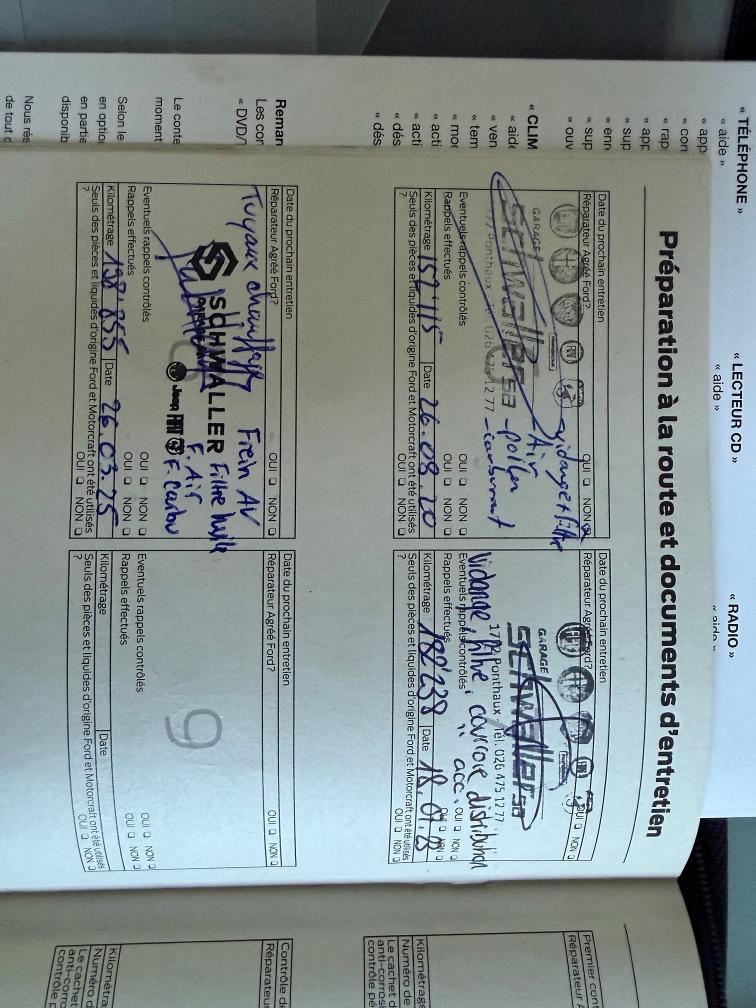 « TÉLÉPHONE »
« aide »
« LECTEUR CD »
« aide »
« RADIO »
« app
« con
« rap
« app
« sup
« enr
« sup
« ouv
« CLIM
« aide
« ven
« tem
« mod
« acti
« dés
« acti
« dés
Remar
Les cor
« DVD/
Le conte
moment
Selon le
en optio
en partie
disponib
Nous rés
de tout c
Préparation à la route et documents d'entretien
Date du prochain entretien
Réparateur Agréé Ford?
OUI NON
vidange + filtre
Air
- pollen
- carburant
GARAGE
SCHWALLER SA
Ponthaux
026 475 12 77
Eventuels rappels contrôlés
OUI NON
Rappels effectués
OUI NON
Kilométrage 152'115 Date 26.08.20
Seuls des pièces et liquides d'origine Ford et Motorcraft ont été utilisés
? OUI NON
Date du prochain entretien
Réparateur Agréé Ford?
OUI NON
GARAGE
SCHWALLER SA
Ponthaux Tél. 026 475 12 77
Vidange, filtre, courroie distribution
" acc.
Eventuels rappels contrôlés
OUI NON
Rappels effectués
OUI NON
Kilométrage 182'238 Date
Seuls des pièces et liquides d'origine Ford et Motorcraft ont été utilisés
? OUI NON
Date du prochain entretien
Réparateur Agréé Ford?
OUI NON
Tuyaux chauffage
Frein AV
Filtre huile
F. Air
F. Carbu
SCHWALLER
Jeep FIAT
Eventuels rappels contrôlés
OUI NON
Rappels effectués
OUI NON
Kilométrage 198'855 Date 26.03.25
Seuls des pièces et liquides d'origine Ford et Motorcraft ont été utilisés
? OUI NON
Date du prochain entretien
Réparateur Agréé Ford?
OUI NON
9
Eventuels rappels contrôlés
OUI NON
Rappels effectués
OUI NON
Kilométrage Date
Seuls des pièces et liquides d'origine Ford et Motorcraft ont été utilisés
? OUI NON
Premier con
Réparateur A
Kilométrage
Numéro de
Le cachet d
anti-corrosi
contrôle pé
Contrôle de
Réparateur
Kilométra
Numéro d
Le cachet
anti-corro
contrôle p